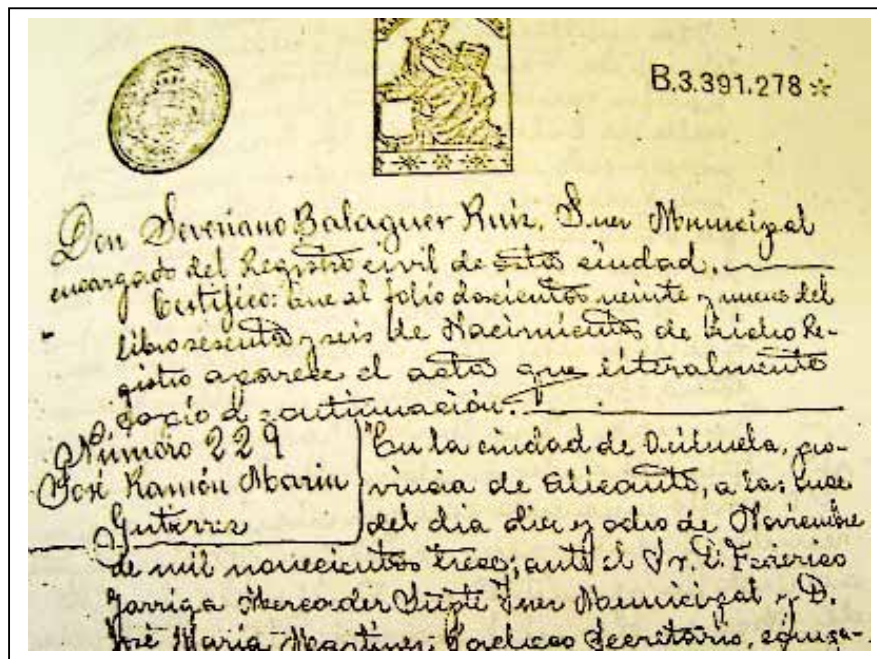 B.3.391.278
Don Severiano Balaguer Ruiz, Juez Municipal
encargado del Registro civil de esta ciudad.
Certifico: que al folio doscientos veinte y nueve del
libro sesenta y seis de Nacimientos de dicho Re-
gistro aparece el acta que literalmente
copio a continuación.
Número 229
José Ramón Marin
Gutierrez
"En la ciudad de Orihuela, pro-
vincia de Alicante, a las once
del dia diez y ocho de Noviembre
de mil novecientos trece; ante el Sr. D. Federico
Mercader Juez Municipal y D.
José María Martinez Secretario,